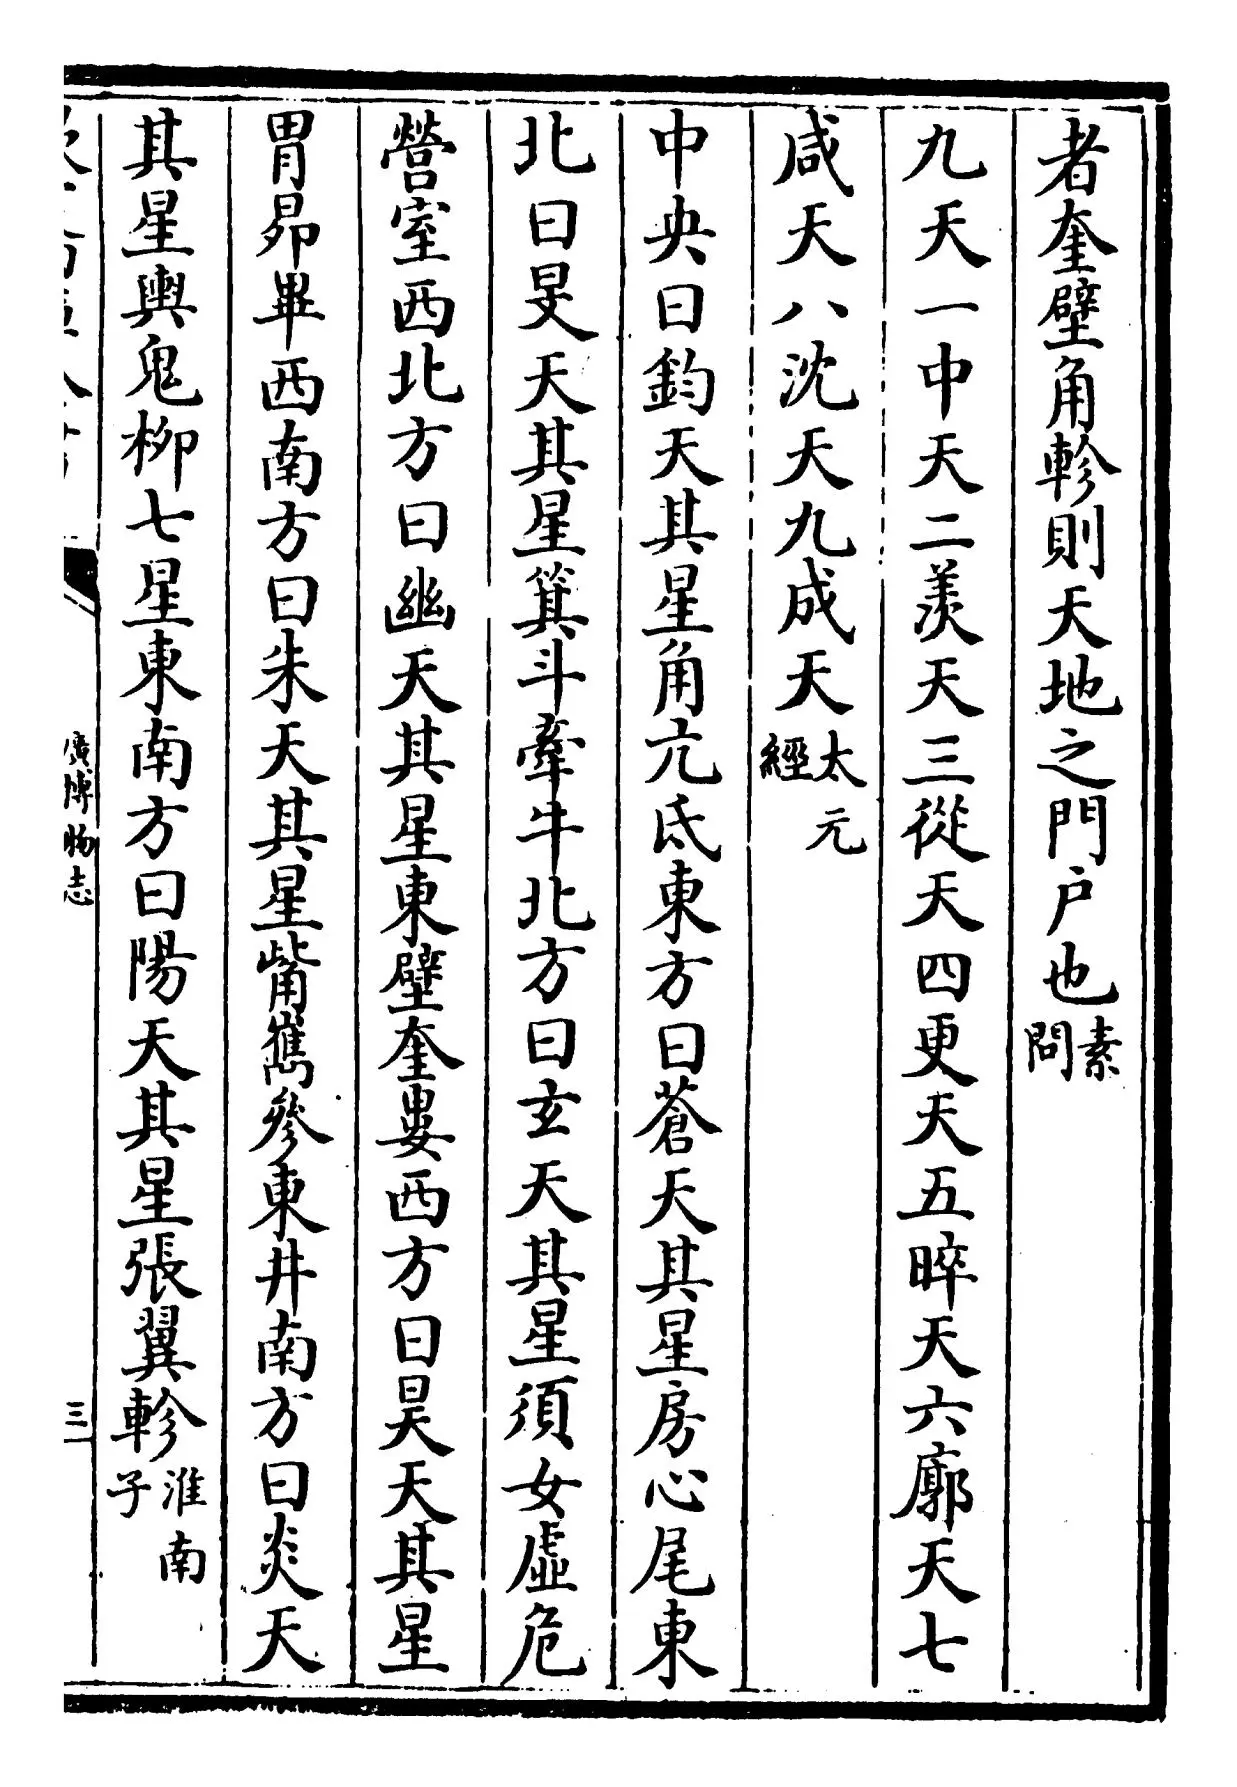 者奎壁角軫則天地之門户也素問
九天一中天二羨天三從天四更天五晬天六廓天七
咸天八沈天九成天太元經
中央曰鈞天其星角亢氐東方曰蒼天其星房心尾東
北曰旻天其星箕斗牽牛北方曰玄天其星須女虛危
營室西北方曰幽天其星東壁奎婁西方曰昊天其星
胃昴畢西南方曰朱天其星觜巂參東井南方曰炎天
其星輿鬼柳七星東南方曰陽天其星張翼軫淮南子
廣博物志
三